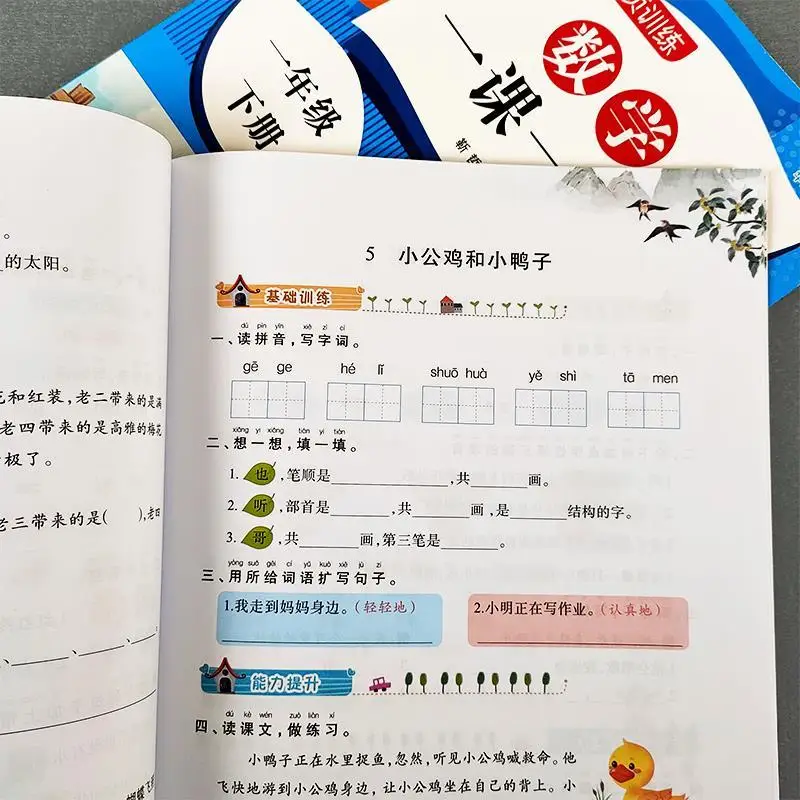 一年级
下册
数学
一课一
训练
。
的太阳。
和红装，老二带来的是满
老四带来的是高雅的梅花
极了。
老三带来的是(  ),老四
5 小公鸡和小鸭子
基础训练
dú pīn yīn xiě zì cí
一、读拼音，写字词。
gē ge hé lǐ shuō huà yě shì tā men
xiǎng yi xiǎng tián yi tián
二、想一想，填一填。
1. 也，笔顺是____________，共______画。
2. 听，部首是______，共______画，是______结构的字。
3. 哥，共______画，第三笔是______。
yòng suǒ gěi cí yǔ kuò xiě jù zi
三、用所给词语扩写句子。
1.我走到妈妈身边。（轻轻地）
2.小明正在写作业。（认真地）
能力提升
dú kè wén zuò liàn xí
四、读课文，做练习。
小鸭子正在水里捉鱼，忽然，听见小公鸡喊救命。他
飞快地游到小公鸡身边，让小公鸡坐在自己的背上。小